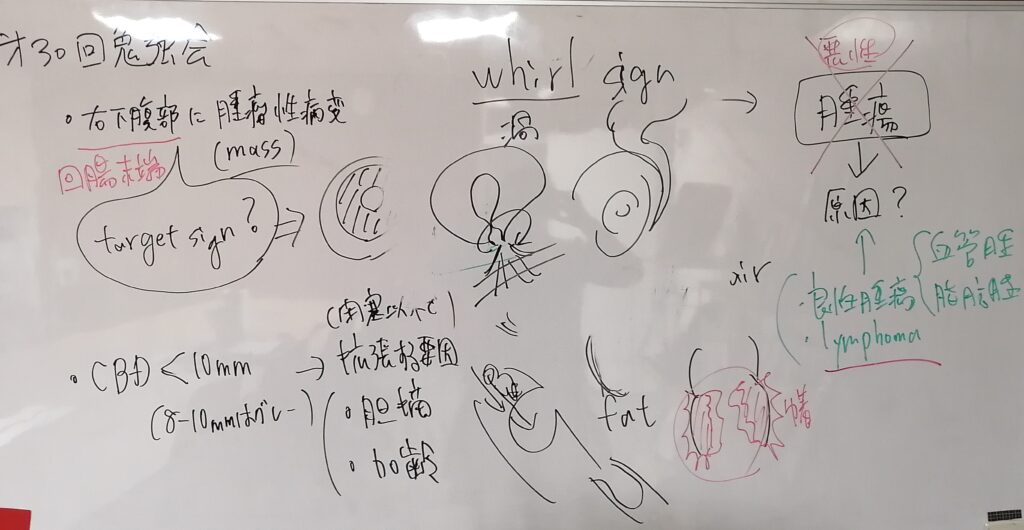 才30回勉強会
・右下腹部に腫瘤性病変
(mass)
回腸末端
target sign?
⇒
whirl sign
渦
→
悪性
腫瘍
↓
原因?
↑
・良性腫瘍
血管腫
脂肪腫
・lymphoma
air
・CBD<10mm
(8-10mmはグレー)
(閉塞以外で)
→拡張する要因
・胆摘
・加齢
fat